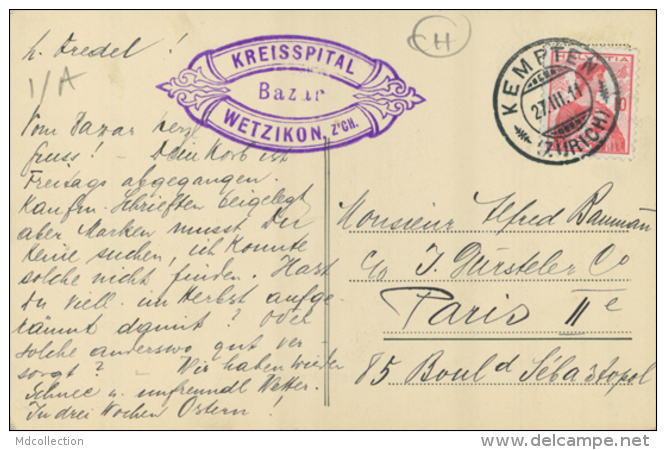 L. Fredel!
1/A
CH
KREISSPITAL
Bazar
WETZIKON, Z'CH.
KEMPTEN
27.III.11
(ZÜRICH)
HELVETIA
10
Vom Bazar herzl.
Gruss! – Dein Korb ist
Freitags abgegangen.
Kaufm. Schriften beigelegt
aber Marken musst Du
keine suchen, ich konnte
solche nicht finden. Hast
Du viell. im Herbst aufge-
räumt damit? Oder
solche anderswo gut ver-
sorgt? – Wir haben wieder
Schnee u. unfreundl. Wetter.
In drei Wochen Ostern!
Monsieur Alfred Baumann
c/o J. Gürsteler Co
Paris IIe
85 Boul d Sébastopol
Mdcollection
delcampe.net